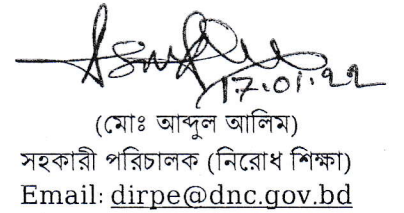 17.01.22
(মোঃ আব্দুল আলিম)
সহকারী পরিচালক (নিরোধ শিক্ষা)
Email: dirpe@dnc.gov.bd